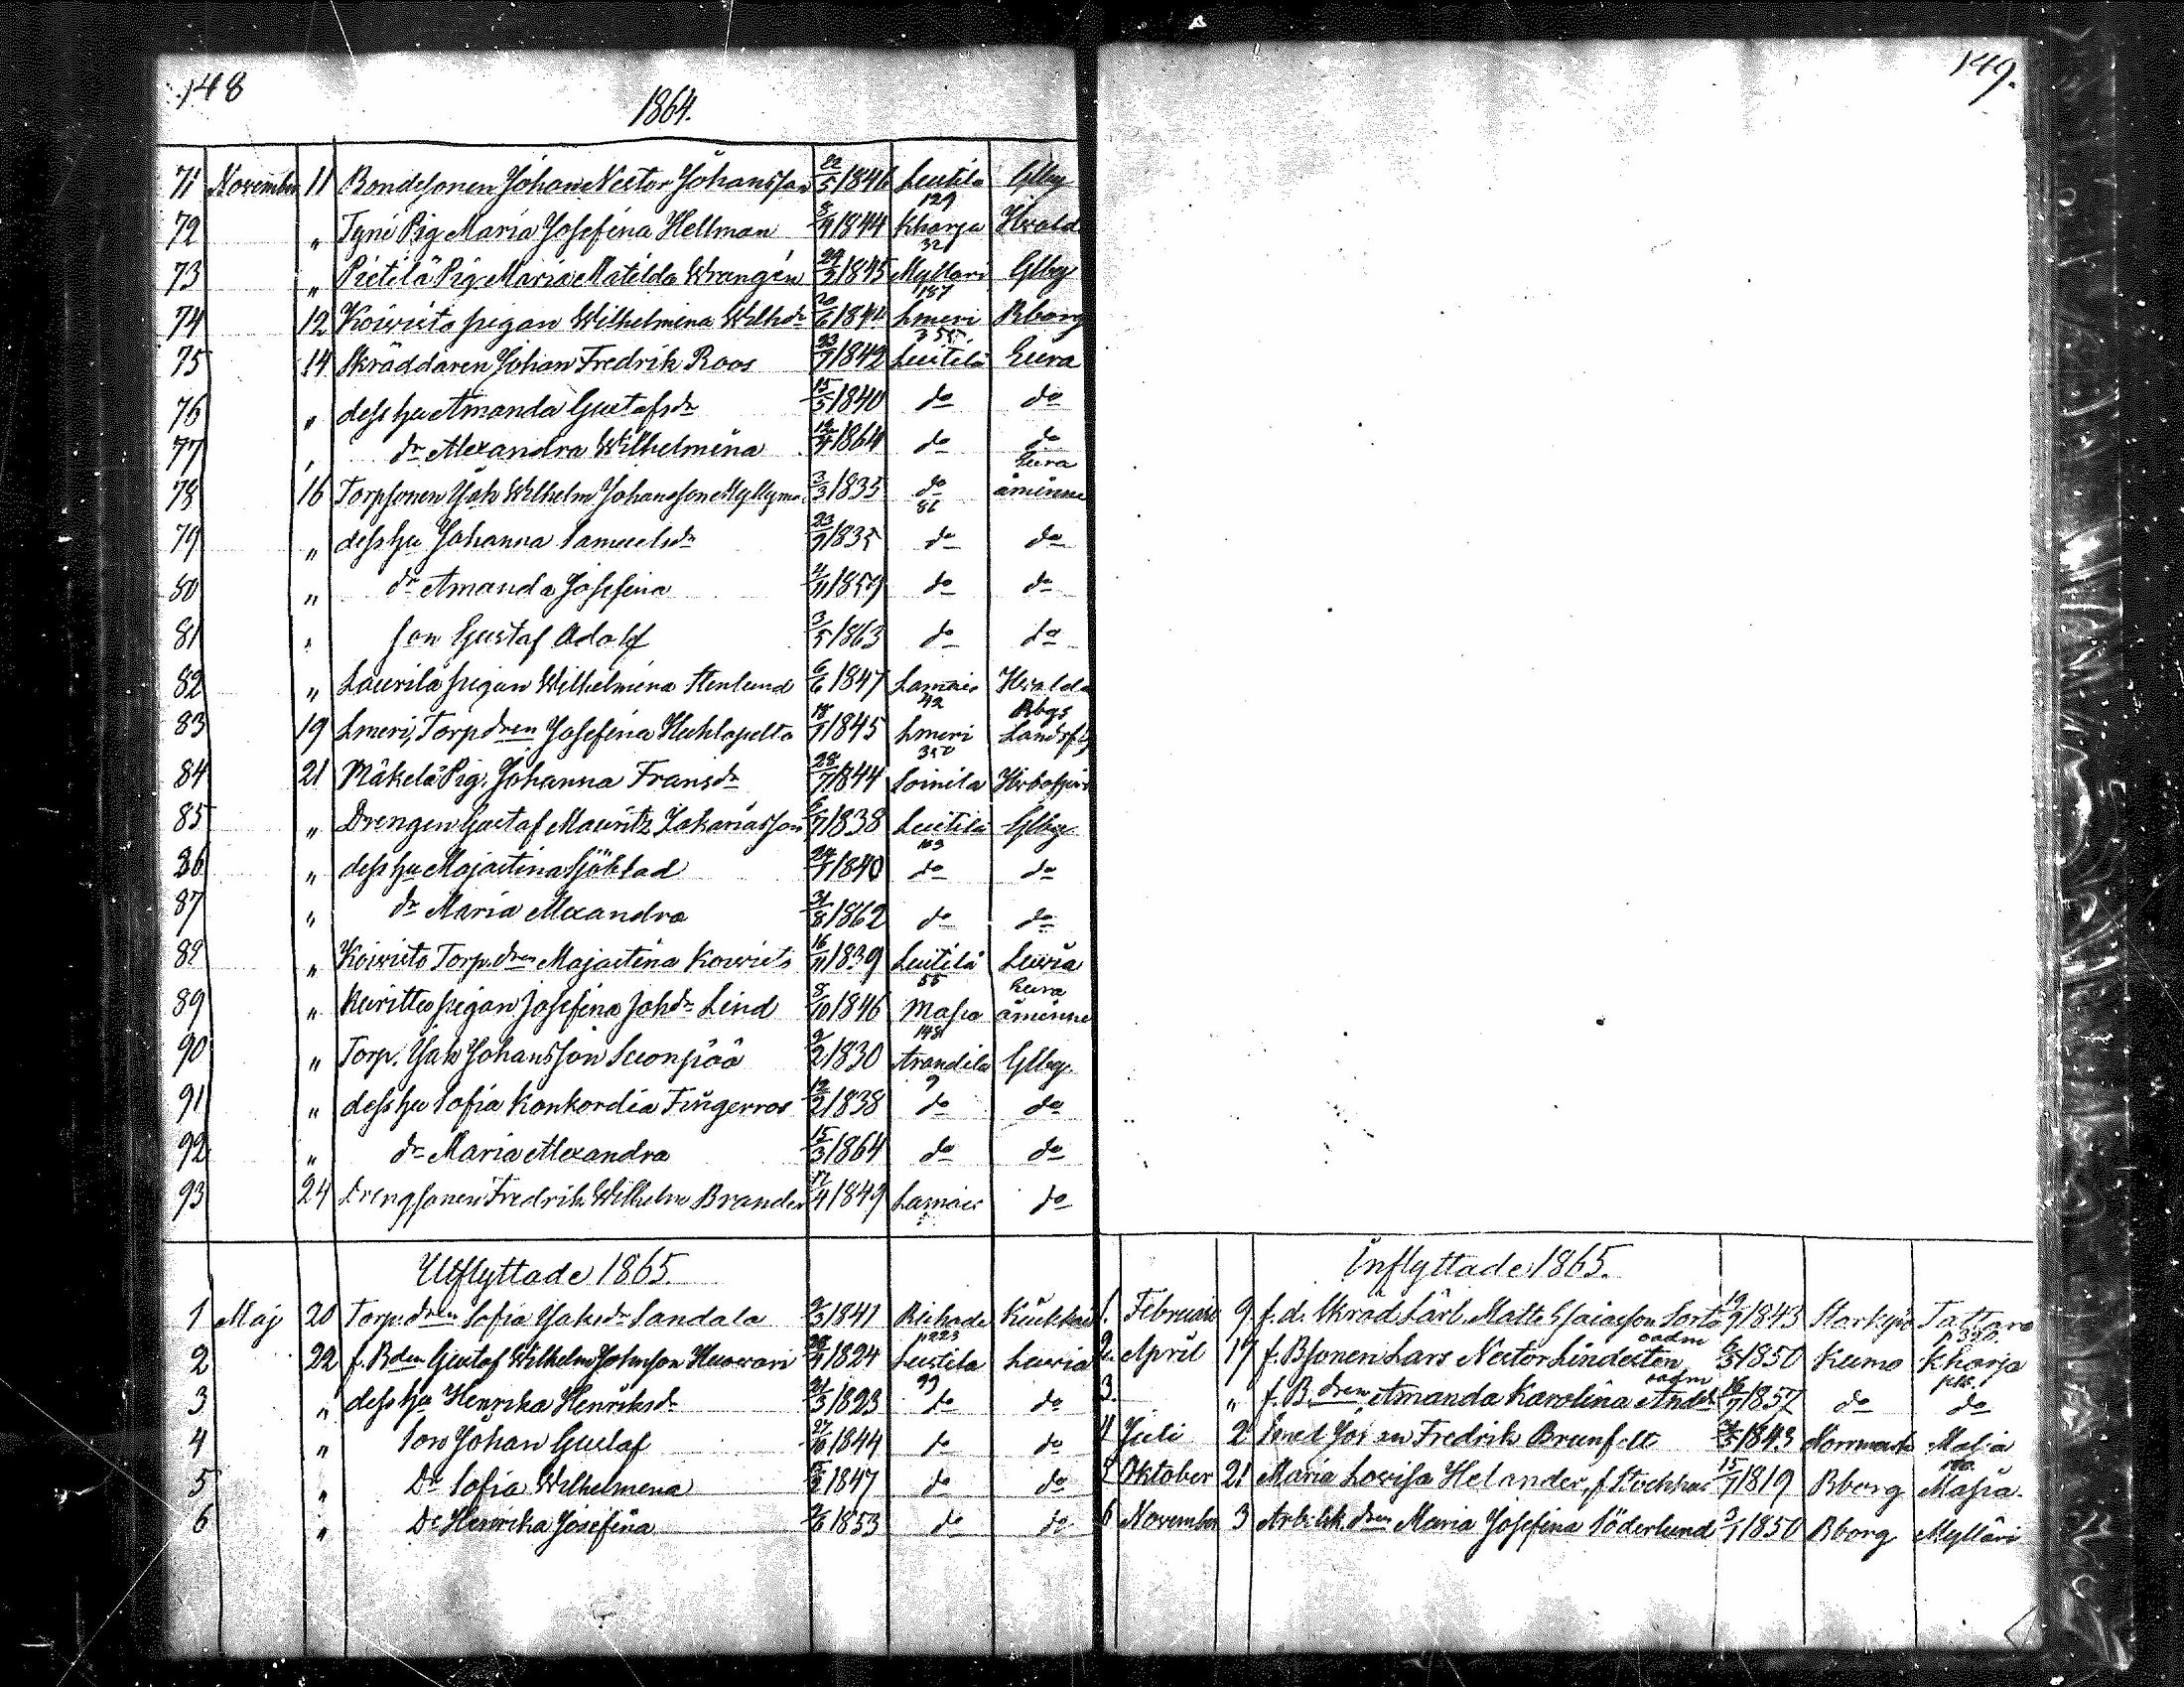 148
1864.
71 November 11 Bondesonen Johan Nestor Johansson 22/5 1846 Leutila Glby
129
72 " Tyni Pig Maria Josefina Hellman 8/9 1844 Kharja Hvald
32
73 " Pietilä Pig Maria Matilda Wrangén 29/2 1845 Myllari Glby
187
74 12 Koivisto pigan Wilhelmina Wilhdr 20/6 1844 Lmeri Bborg
355
75 14 Skräddaren Johan Fredrik Roos 23/7 1842 Leutila Eura
76 " dess hu Amanda Gustafsdr 15/5 1840 do do
77 " dr Alexandra Wilhelmina 12/4 1864 do do
Eura
78 16 Torpsonen Jak Wilhelm Johansson Myllyma 3/3 1835 do åminne
86
79 " dess hu Johanna Samuelsdr 23/9 1835 do do
80 " dr Amanda Josefina 2/11 1859 do do
81 " son Gustaf Adolf 3/5 1863 do do
82 " Laurila pigan Wilhelmina Stenlund 6/6 1847 Lamais Hvalda
42 Bbgs
83 19 Lmeri, Torpdren Josefina Huhlapelto 18/7 1845 Lmeri Landsf
350
84 21 Mäkelä Pig. Johanna Fransdr 28/7 1844 Soinila
85 " Drengen Gustaf Mauritz Zakariasson 1838 Leutila Glby
103
86 " dess hu Majastina Sjöblad 24/7 1840 do do
87 " dr Maria Alexandra 31/8 1862 do do
88 " Koivisto Torp. dren Majastina Koivisto 16/11 1839 Leutila Luvia
55 Eura
89 " pigan Josefina Johdr Lind 8/10 1846 Masia åminne
148
90 " Torp. Jak Johansson Suonpää 9/2 1830 Arandila Glby.
9
91 " dess hu Sofia Konkordia Fingerroos 12/2 1838 do do
92 " dr Maria Alexandra 15/3 1864 do do
93 24 Drengsonen Fredrik Wilhelm Brander 17/4 1849 Lamais do
Utflyttade 1865
1 Maj 20 Torp. dren Sofia Jaksdr Sandala 9/3 1841
p 223
2 22 f. Bden Gustaf Wilhelm Johnsson Huovari 1824 Leutila Luvia
99
3 " dess hu Henrika Henriksdr 31/3 1823 do do
4 " Son Johan Gustaf 27/10 1844 do do
5 " Dr Sofia Wilhelmena 1847 do do
6 " Dr Henrika Josefina 1853 do do
149.
Inflyttade 1865.
1. Februari 9 f. d. Skräd Lärl. Matts Esaiasson 19/9 1843 Tattara
2. April 17 f. Bsonen Lars Nestor Lindsten 6/3 1850 Kumo Kharja
3. " f. B. dren Amanda Karolina 1857 do do
4 Juli 2 Fredrik Brunfelt 1843 Norrmark Masia
5 Oktober 21 Maria Lovisa Helander, f. 15/7 1819 Bborg Masia
6 November 3 Arb. dren Maria Josefina Söderlund 3/1 1850 Bborg Mylläri